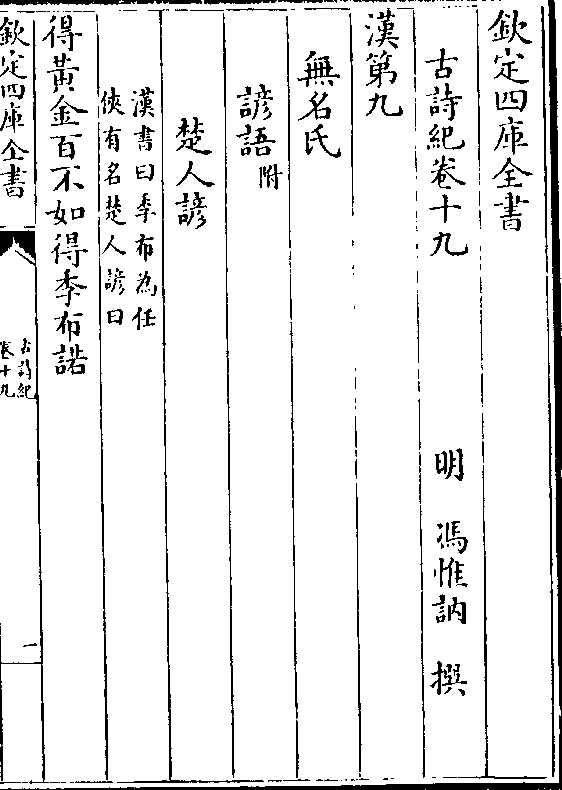 欽定四庫全書
古詩紀卷十九
明 馮惟訥 撰
漢第九
無名氏
諺語附
楚人諺
漢書曰季布為任
俠有名楚人諺曰
得黃金百不如得季布諾
欽定四庫全書
古詩紀
卷十九
一